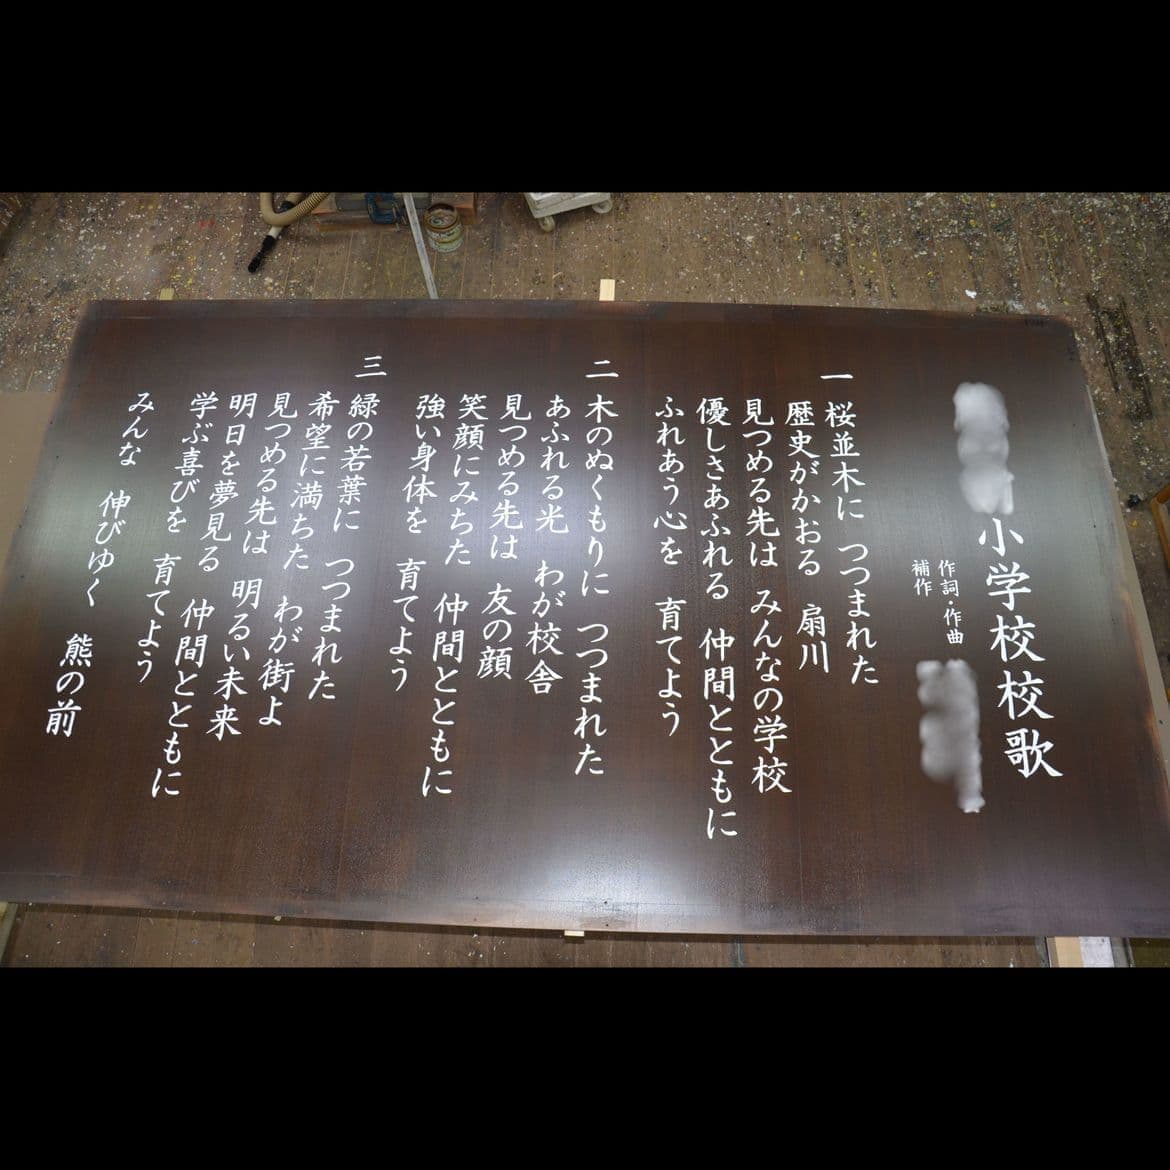 小学校校歌
作詞・作曲
補作
一
桜並木に つつまれた
歴史がかおる 扇川
見つめる先は みんなの学校
優しさあふれる 仲間とともに
ふれあう心を 育てよう
二
木のぬくもりに つつまれた
あふれる光 わが校舎
見つめる先は 友の顔
笑顔にみちた 仲間とともに
強い身体を 育てよう
三
緑の若葉に つつまれた
希望に満ちた わが街よ
見つめる先は 明るい未来
明日を夢見る 仲間とともに
学ぶ喜びを 育てよう
みんな 伸びゆく 熊の前